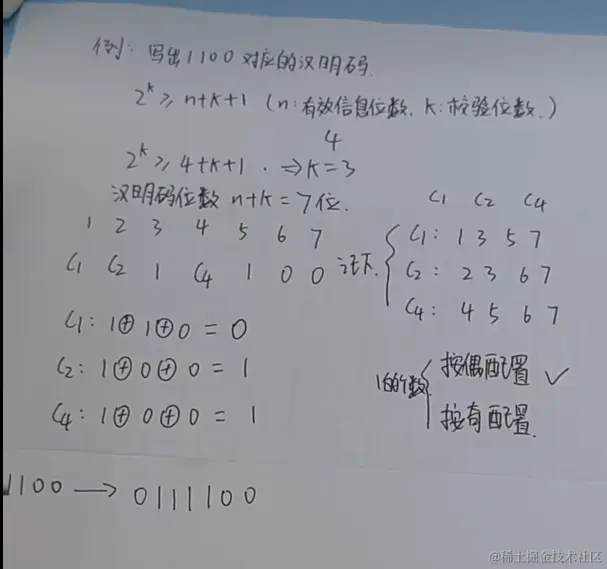 例: 写出1100对应的汉明码.
2^k ≥ n+k+1 (n:有效信息位数. k:校验位数.)
4
2^k ≥ 4+k+1 . ⇒ k=3
汉明码位数 n+k=7位.
C1 C2 C4
1 2 3 4 5 6 7
C1: 1 3 5 7
C1 C2 1 C4 1 0 0
C2: 2 3 6 7
C4: 4 5 6 7
C1: 1⊕1⊕0 = 0
C2: 1⊕0⊕0 = 1
C4: 1⊕0⊕0 = 1
1的个数 { 按偶配置 ✓
按有配置.
1100 → 0111100
@稀土掘金技术社区